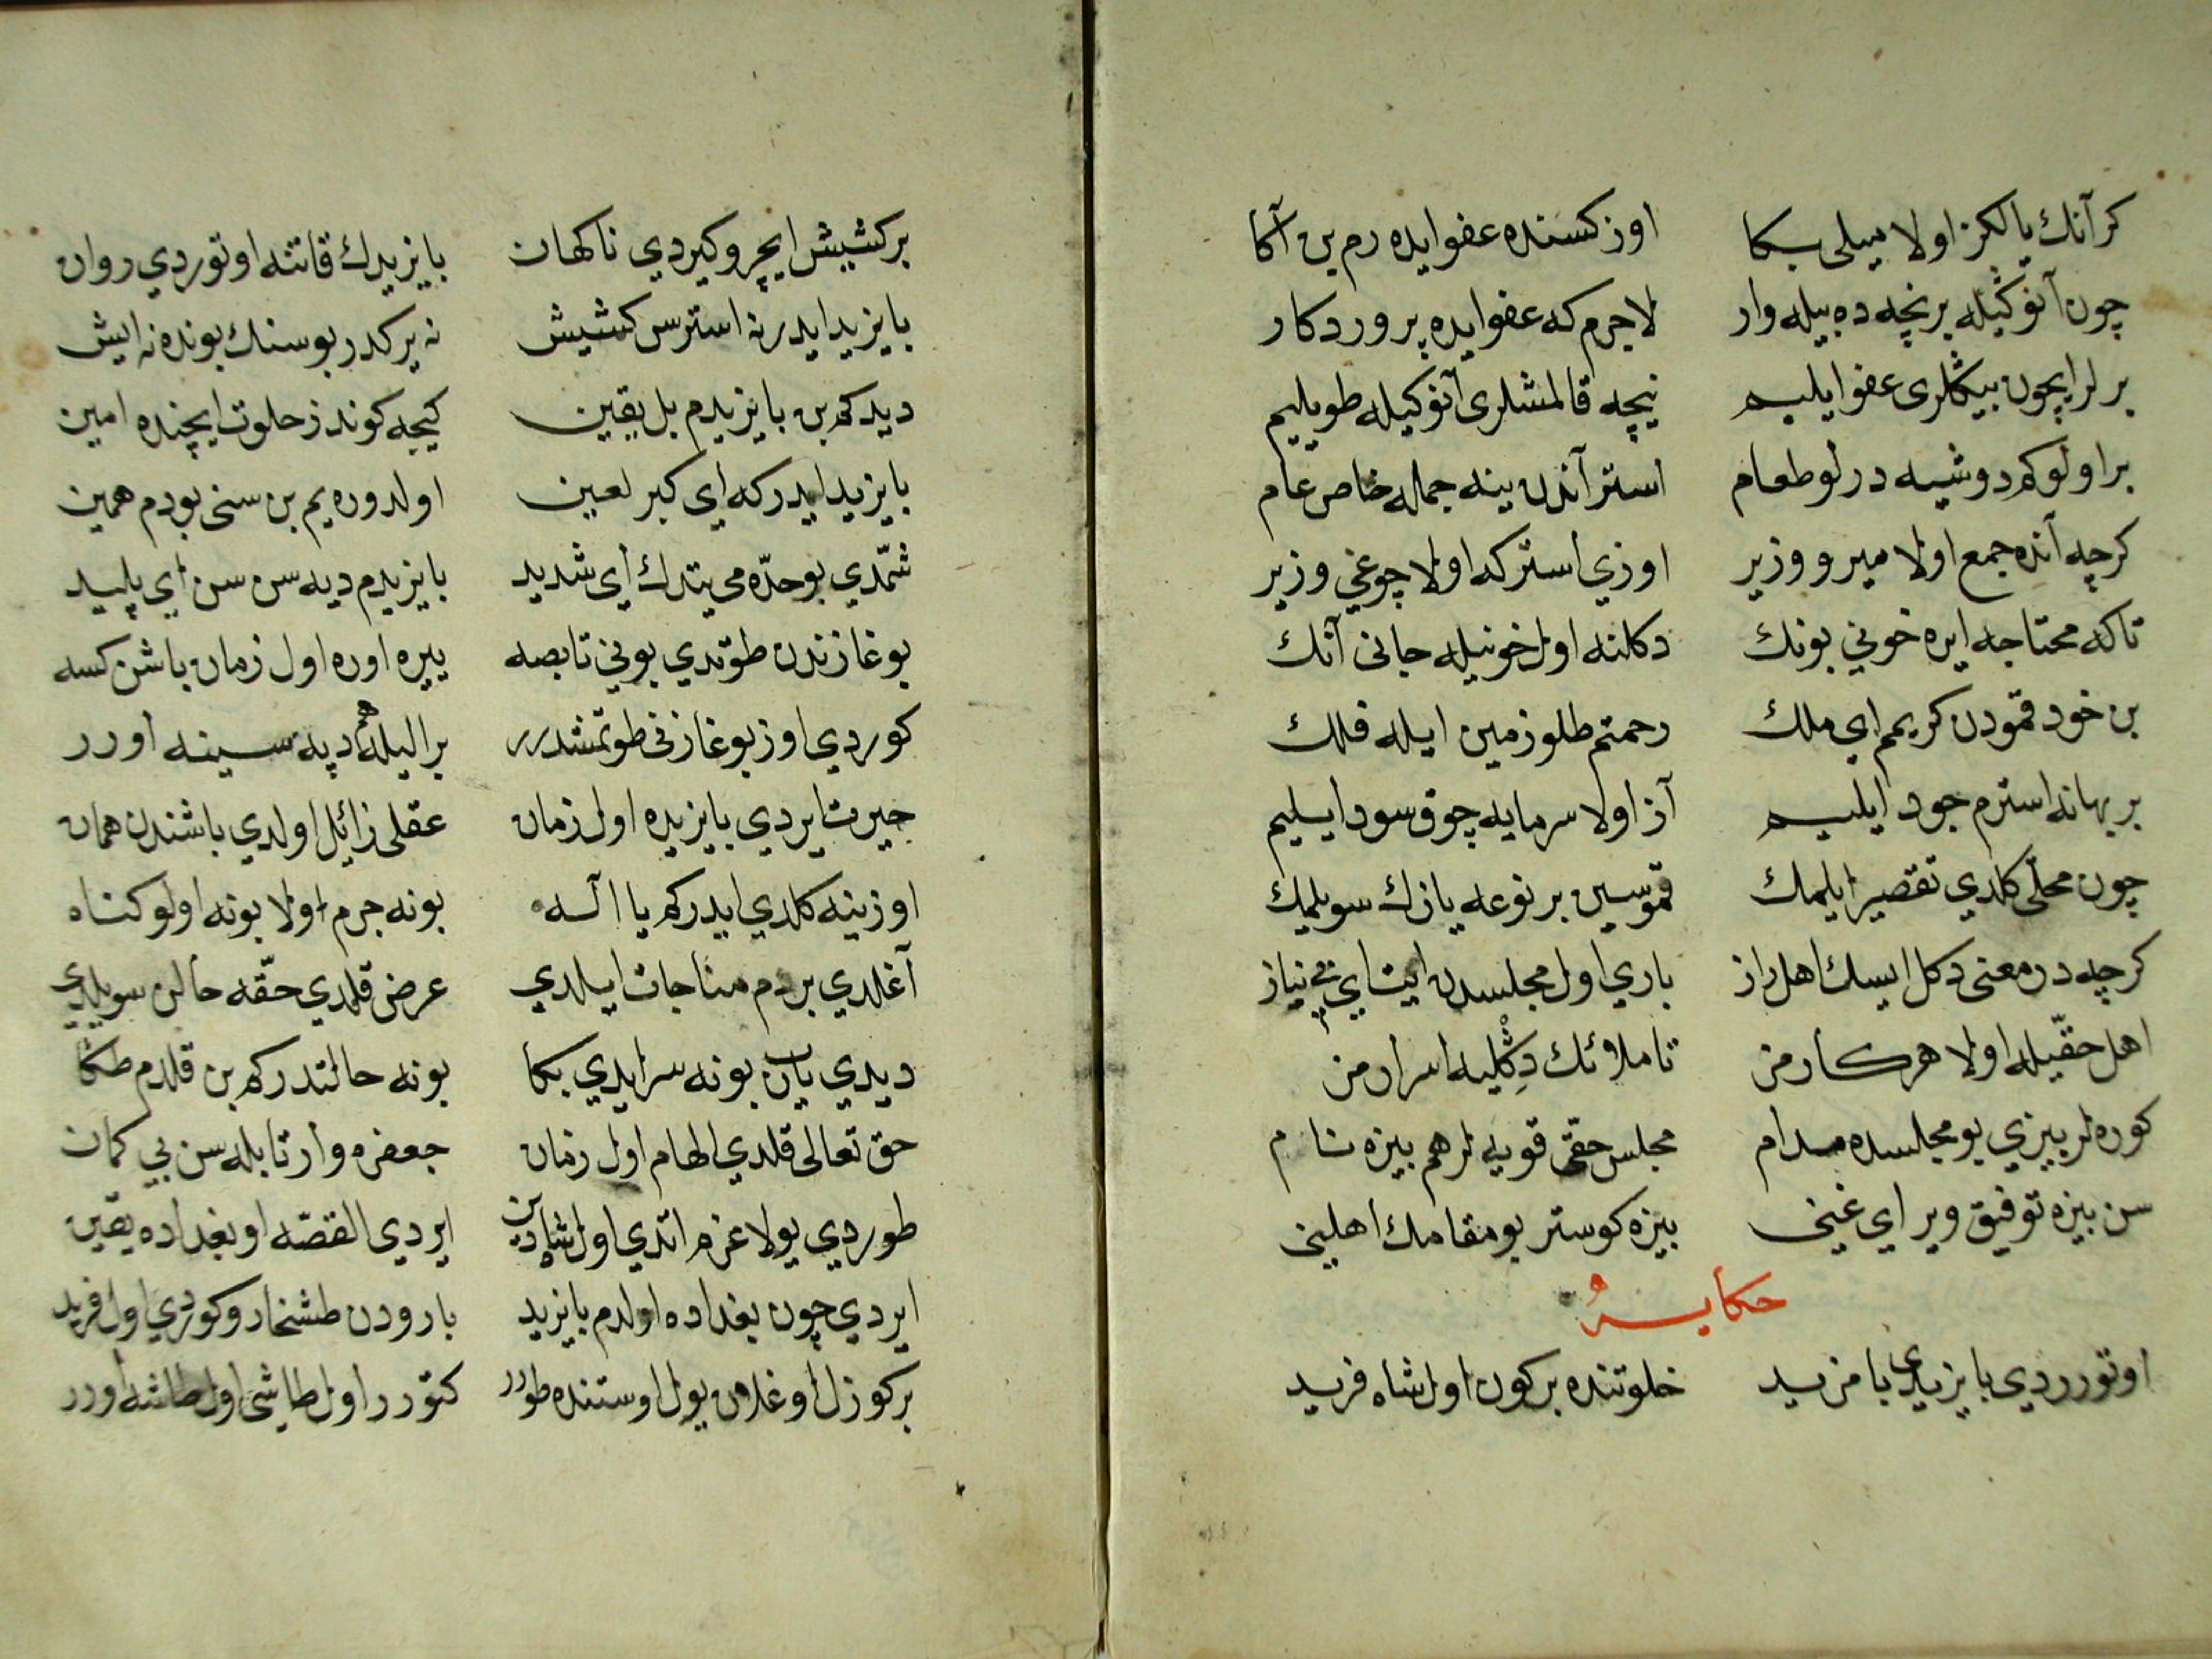 كر آنك يالكز اولا ميلى بكا اوز كسنده عفو ايده رم بن آكا
چون آنوكيله برنچه ده بيله وار لاجرم كه عفو ايده پروردكار
بر لر ايچون بيكلرى عفو ايليم نيچه قالمشلرى آنوكيله طويليم
بر اولو كم دوشيه درلو طعام استر آندن ينه جمله خاص عام
كرچه آنده جمع اولا مير و وزير اوزي استر كه اولا چوغي وزير
تاكه محتاجه ايره خوني بونك دكلنه اول خونيله جانى آنك
بن خود قمودن كريمم اي ملك رحمتم طلو زمين ايله فلك
بر بهانه استرم جود ايليم آز اولا سرمايه چوق سود ايليم
چون محلى كلدي تقصير ايلمك قموسين بر نوعه يازك سويلمك
كرچه در معنى دكل ايسك اهل راز باري اول مجلسدن ايت اي بي نياز
اهل حقيله اولا هر كارمز تا ملائك دكليه اسرارمز
كوره لر بيزي بو مجلسده مدام مجلس حقى قويه لر هم بيزه نام
سن بيزه توفيق وير اي غني بيزه كوستر بو مقامك اهليني
حكايه
اوتورردي بايزيدى بامزيد خلوتنده بر كون اول شاه فريد
بر كشيش ايچرو كيردي ناكهان بايزيدك قاتنه اوتوردي روان
بايزيد ايدر نه استرسن كشيش نه يركدر بو سنك بونده نه ايش
ديدكم بن بايزيدم بل يقين كيجه كوندز خلوت ايچنده امين
بايزيد ايدر كه اي كبر لعين اولدوره يم بن سنى بو دم همين
شمدي بو حده مى يتدك اي شديد بايزيدم ديه سن سن اي پليد
بوغازندن طوتدي بوني تا بصه ييره اوره اول زمان باشن كسه
كوردي اوز بوغازنى طوتمشدرر بر اليله هم دپه سينه اورر
حيرت ايردي بايزيده اول زمان عقلى زائل اولدي باشندن همان
اوزينه كلدي ايدركم يا اله بونه جرم اولا بونه اولو كناه
آغلدي بر دم مناجات ايلدي عرض قلدي حقه حالن سويلدي
ديدي يارب بونه سر ايدي بكا بونه حالتدركم بن قلدم طكا
حق تعالى قلدي الهام اول زمان جعفره وار تا بله سن بي كمان
طوردي يولا عزم اتدي اول شاه دين ايردي القصه او بغداده يقين
ايردي چون بغداده اولدم بايزيد بارودن طشخارو كوردي اول فريد
بر كوزل اوغلان يول اوستنده طورر كتورر اول طاشى اول طاشه اورر